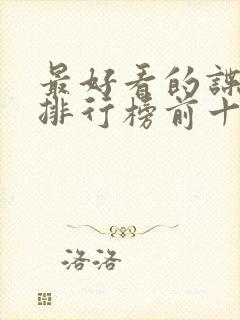 最好看的谍
排行榜前十
洛洛